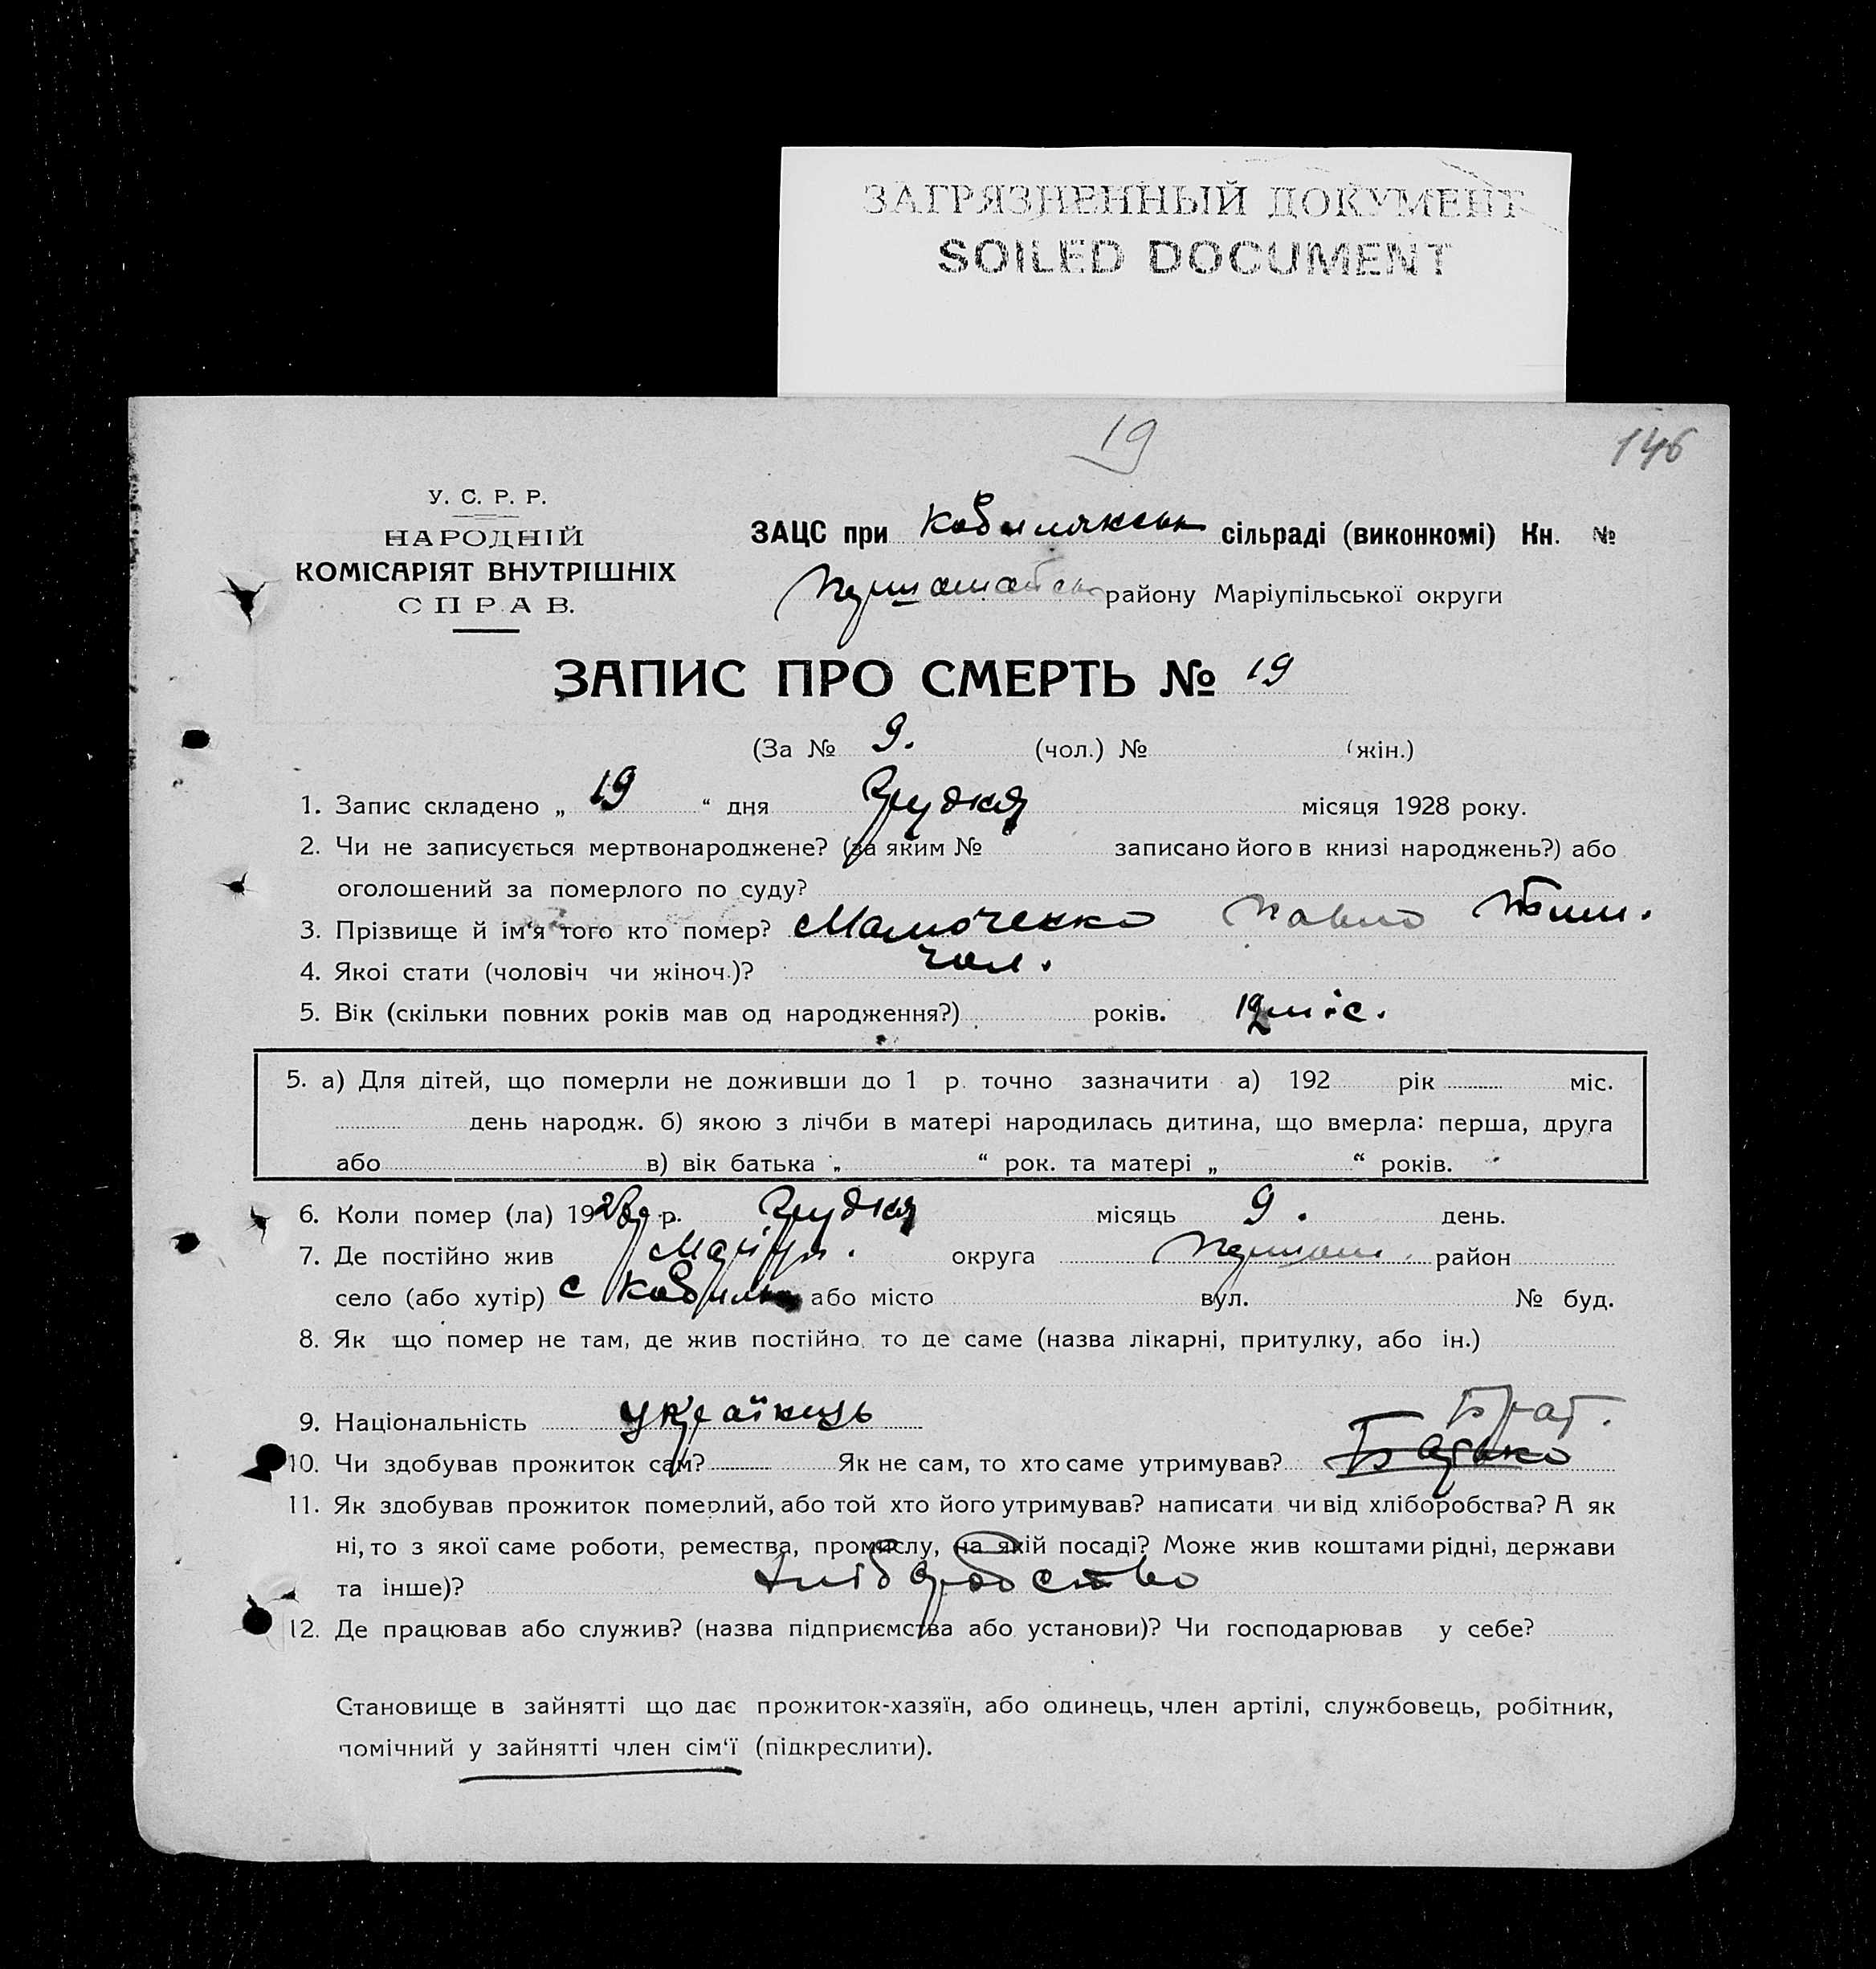 ЗАГРЯЗНЕННЫЙ ДОКУМЕНТ
SOILED DOCUMENT
19
146
У. С. Р. Р.
НАРОДНІЙ
КОМІСАРІЯТ ВНУТРІШНІХ
СПРАВ.
ЗАЦС при сільраді (виконкомі) Кн. №
району Маріупільської округи
ЗАПИС ПРО СМЕРТЬ № 19
(За № 9. (чол.) № (жін.)
1. Запис складено „ 19 “ дня Грудня місяця 1928 року.
2. Чи не записується мертвонароджене? (за яким № записано його в книзі народжень?) або
оголошений за померлого по суду?
3. Прізвище й ім'я того кто помер? Павло
4. Якоі стати (чоловіч чи жіноч.)? чол.
5. Вік (скільки повних років мав од народження?) років. міс.
5. а) Для дітей, що померли не доживши до 1 р. точно зазначити а) 192 рік міс.
день народж. б) якою з лічби в матері народилась дитина, що вмерла: перша, друга
або в) вік батька „ “ рок. та матері „ “ років.
6. Коли помер (ла) 1928 р. Грудня місяць 9. день.
7. Де постійно жив Маріуп. округа район
село (або хутір) с або місто вул. № буд.
8. Як що помер не там, де жив постійно, то де саме (назва лікарні, притулку, або ін.)
9. Національність українець
Брат.
10. Чи здобував прожиток сам? Як не сам, то хто саме утримував? Батько
11. Як здобував прожиток померлий, або той хто його утримував? написати чи від хліборобства? А як
ні, то з якої саме роботи, ремества, промислу, на якій посаді? Може жив коштами рідні, держави
та інше)? хліборобство
12. Де працював або служив? (назва підприємства або установи)? Чи господарював у себе?
Становище в зайнятті що дає прожиток-хазяїн, або одинець, член артілі, службовець, робітник,
помічний у зайнятті член сім'ї (підкреслити).